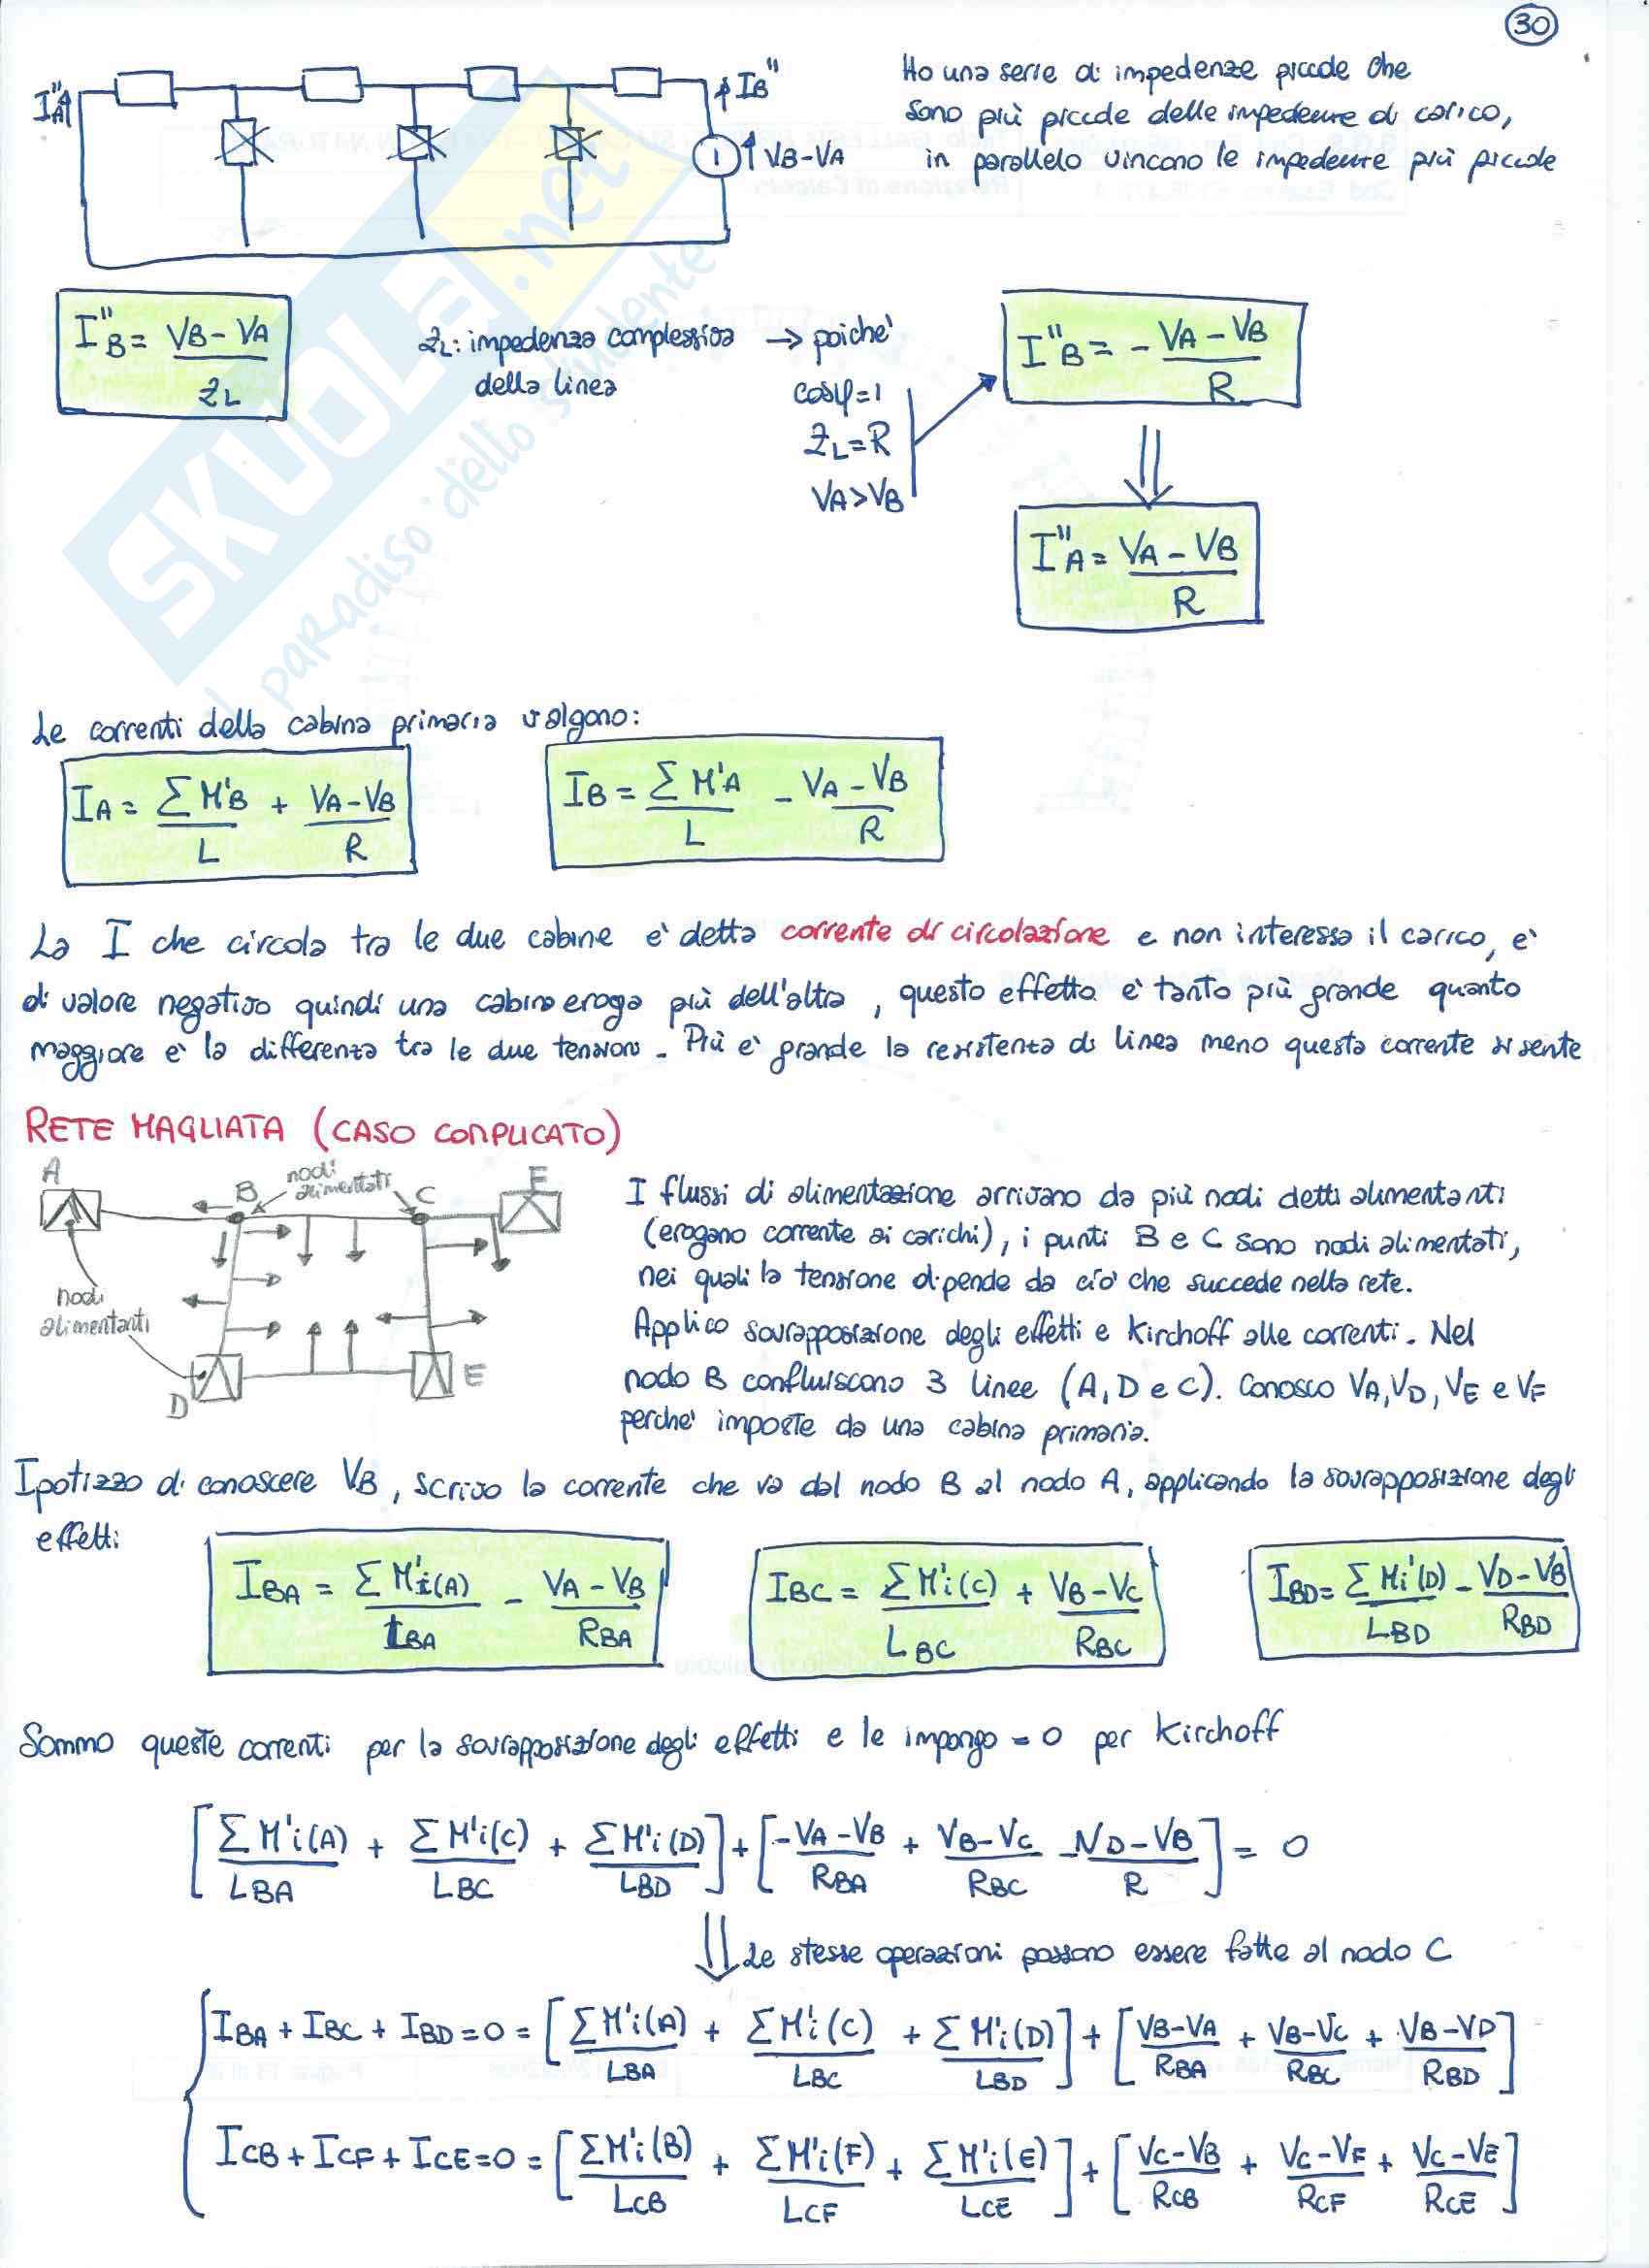 30
I"A
I"B
VB-VA
Ho una serie di impedenze piccole che
sono più piccole delle impedenze di carico,
in parallelo vincono le impedenze più piccole
I"B = VB - VA / ZL
ZL: impedenza complessiva
della linea
→ poichè
cosφ=1
ZL=R
VA>VB
I"B = - VA - VB / R
I"A = VA - VB / R
SKUOLA.net
il paradiso dello studente
Le correnti della cabina primaria valgono:
IA = ΣM'B / L + VA-VB / R
IB = ΣM'A / L - VA-VB / R
La I che circola tra le due cabine è detta corrente di circolazione e non interessa il carico, è
di valore negativo quindi una cabina eroga più dell'altra, questo effetto è tanto più grande quanto
maggiore è la differenza tra le due tensioni. Più è grande la resistenza di linea meno questa corrente si sente
RETE MAGLIATA (CASO COMPLICATO)
A
nodi
alimentati
B
C
F
nodi
alimentanti
D
E
I flussi di alimentazione arrivano da più nodi detti alimentanti
(erogano corrente ai carichi), i punti B e C sono nodi alimentati,
nei quali la tensione dipende da ciò che succede nella rete.
Applico sovrapposizione degli effetti e Kirchoff alle correnti. Nel
nodo B confluiscono 3 linee (A, D e C). Conosco VA, VD, VE e VF
perchè imposte da una cabina primaria.
Ipotizzo di conoscere VB, scrivo la corrente che va dal nodo B al nodo A, applicando la sovrapposizione degli
effetti
IBA = ΣM'i(A) / LBA - VA-VB / RBA
IBC = ΣM'i(C) / LBC + VB-VC / RBC
IBD = ΣMi'(D) / LBD - VD-VB / RBD
Sommo queste correnti per la sovrapposizione degli effetti e le impongo = 0 per Kirchoff
[ΣM'i(A) / LBA + ΣM'i(C) / LBC + ΣM'i(D) / LBD] + [-VA-VB / RBA + VB-VC / RBC - VD-VB / R] = 0
Le stesse operazioni possono essere fatte al nodo C
IBA + IBC + IBD = 0 = [ΣM'i(A) / LBA + ΣM'i(C) / LBC + ΣM'i(D) / LBD] + [VB-VA / RBA + VB-VC / RBC + VB-VD / RBD]
ICB + ICF + ICE = 0 = [ΣM'i(B) / LCB + ΣM'i(F) / LCF + ΣM'i(E) / LCE] + [VC-VB / RCB + VC-VF / RCF + VC-VE / RCE]